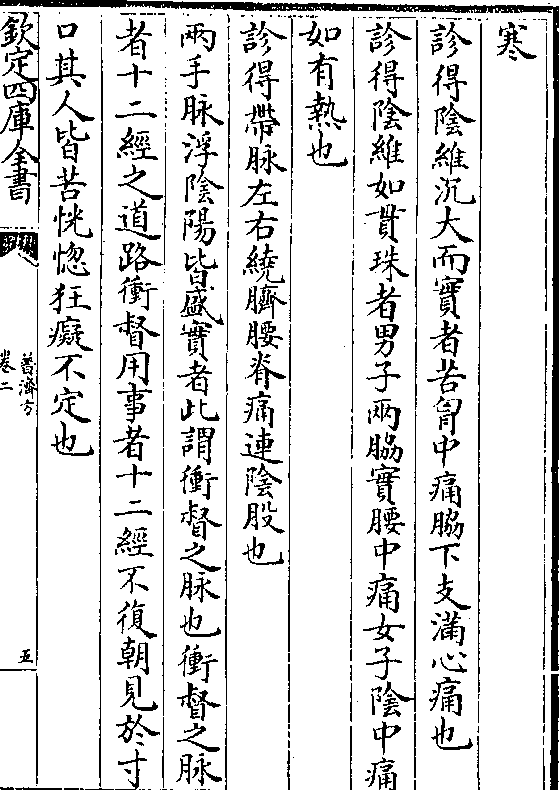 寒
診得陰維沉大而實者苦胷中痛脇下支滿心痛也
診得陰維如貫珠者男子兩脇實腰中痛女子陰中痛
如有熱也
診得帶脉左右繞臍腰脊痛連陰股也
兩手脉浮陰陽皆盛實者此謂衝督之脉也衝督之脉
者十二經之道路衝督用事者十二經不復朝見於寸
口其人皆苦恍惚狂癡不定也
欽定四庫全書
普濟方
卷二
五